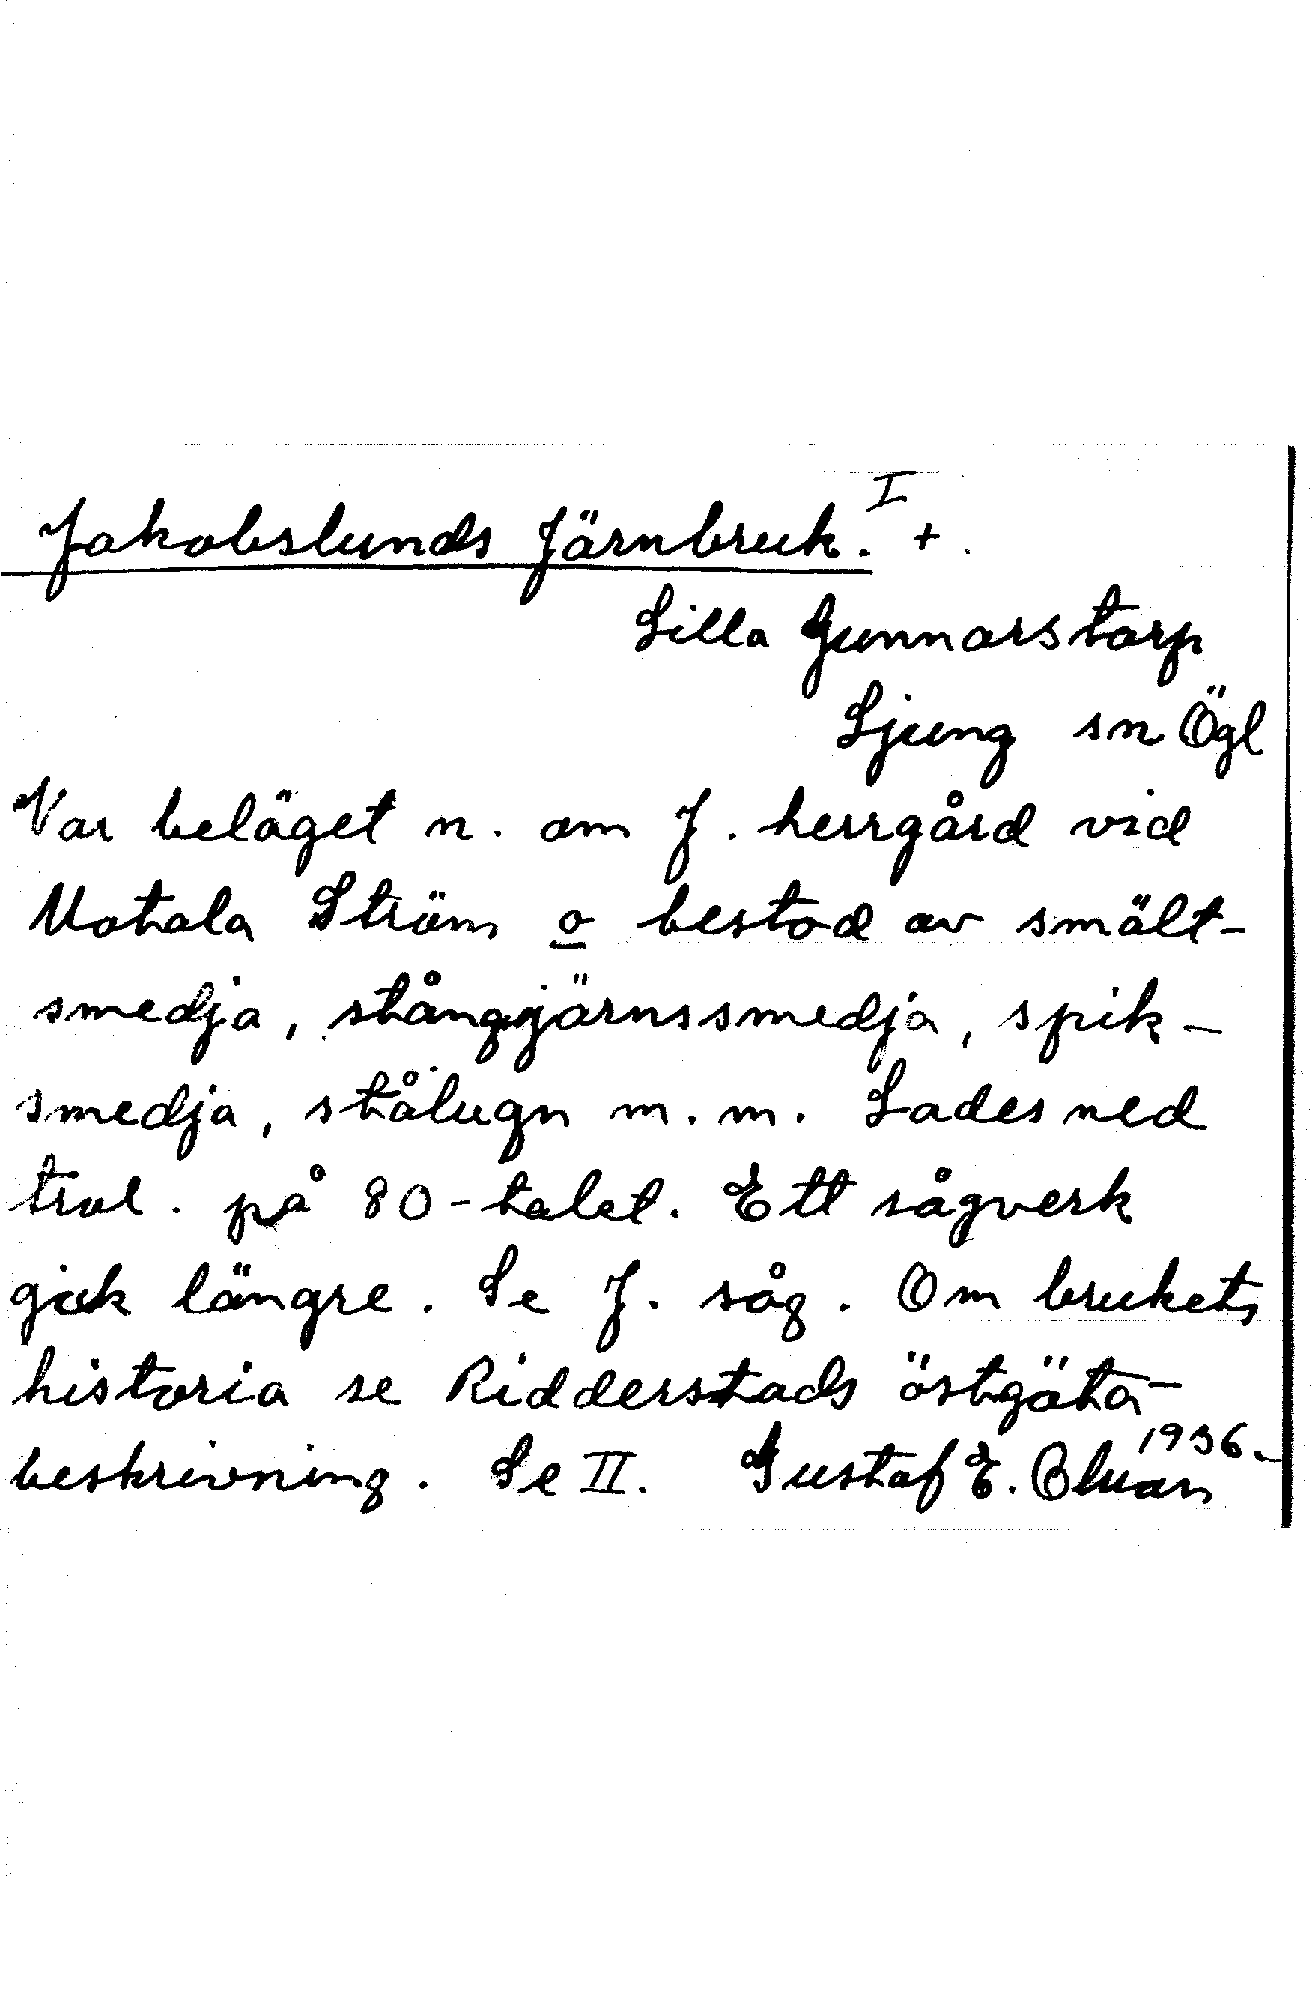 Jakobslunds Järnbruk. I +.
Lilla Gunnarstorp
Ljung sn Ögl
Var beläget n. om J. herrgård vid
Motala Ström o bestod av smält-
smedja, stångjärnssmedja, spik-
smedja, stålugn m. m. Lades ned
trol. på 80-talet. Ett sågverk
gick längre. Se J. såg. Om brukets
historia se Ridderstads östgöta-
beskrivning. Se II. Gustaf E. 1936.